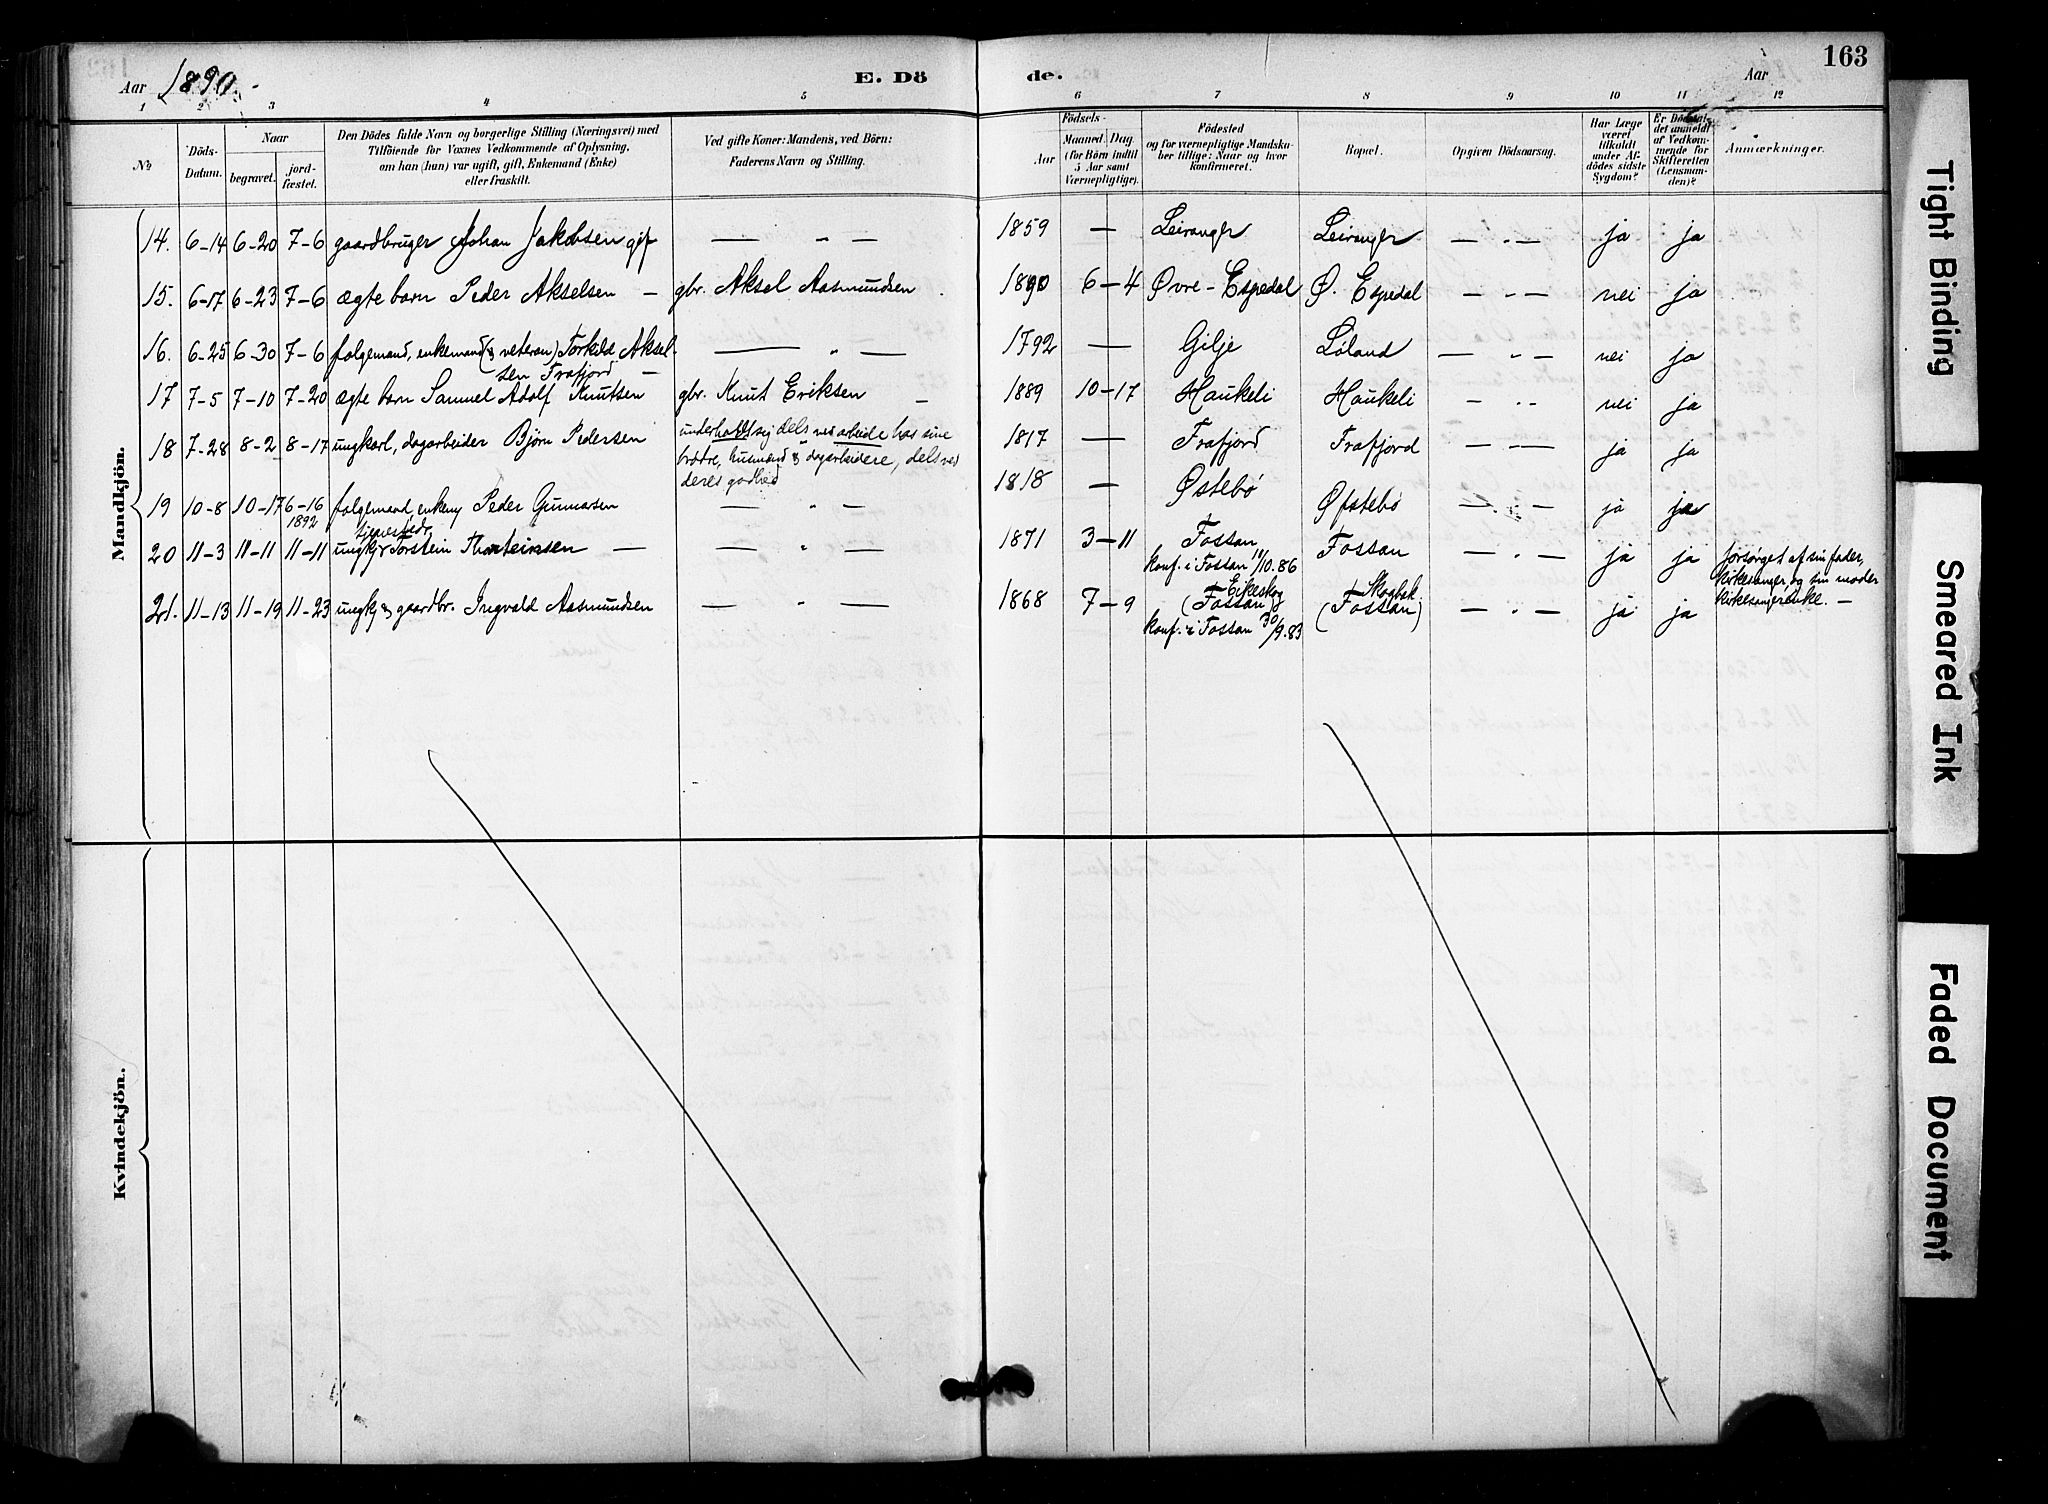 163
Aar 1890.- E. Dö de. Aar
1 2 3 4 5 6 7 8 9 10 11 12
No Döds-Datum. Naar begravet. jord-fæstet. Den Dödes fulde Navn og borgerlige Stilling (Næringsvei) med Tilföiende for Voxnes Vedkommende af Oplysning, om han (hun) var ugift, gift, Enkemand (Enke) eller fraskilt. Ved gifte Koner: Mandens, ved Börn: Faderens Navn og Stilling. Födsels- Aar Maaned. Dag (for Börn indtil 5 Aar samt Værnepligtige). Födested og for værnepligtige Mandskaber tillige: Naar og hvor konfirmeret. Bopæl. Opgiven Dödsaarsag. Har Læge været tilkaldt under Afdödes sidste Sygdom? Er Dödsfaldet anmeldt af Vedkommende for Skifteretten (Lensmanden)? Anmærkninger.
Mandkjön.
14. 6-14 6-20 7-6 gaardbruger Johan Jakobsen gif — „ — 1859 — Leiranger Leiranger — „ — ja ja
15. 6-17 6-23 7-6 ægte barn Peder Akselsen — gbr. Aksel Aasmundsen 1890 6-4 Øvre-Espedal Ø. Espedal — „ — nei ja
16. 6-25 6-30 7-6 folgemand, enkemand (& veteran) Torkild Aksel- — „ — 1792 — Gilje Løland — „ — nei ja
sen Frafjord —
17 7-5 7-10 7-20 ægte barn Samuel Adolf Knutsen gbr. Knut Eriksen — 1889 10-17 Haukeli Haukeli — „ nei ja
18 7-28 8-2 8-17 ungkarl, dagarbeider Bjørn Pedersen underholdt sig dels ved arbeide hos sine 1817 — Frafjord Frafjord — „ — ja ja
brødre, husmænd & dagarbeidere, dels ved
deres godhed
19 10-8 10-17 6-16 1892 folgemand enkem Peder Gunnarsen — „ — 1818 — Østebø Øfstebø — „ — ja ja
20 11-3 11-11 11-11 ungk & Torstein Thorteinsen — — „ — 1871 3-11 Fossan Fossan — „ — ja ja forsørget af sin fader,
konf. i Fossan 11/10.86 kirkesanger, og sin moder
kirkesangerenke. —
21. 11-13 11-19 11-23 ungkj & gaardbr. Ingvald Aasmundsen — „ — 1868 7-9 Eikeskog (Fossan) Skogbak. (Fossan) — „ — ja ja
konf. i Fossan 30/9.83
Kvindekjön.
Tight Binding
Smeared Ink
Faded Document